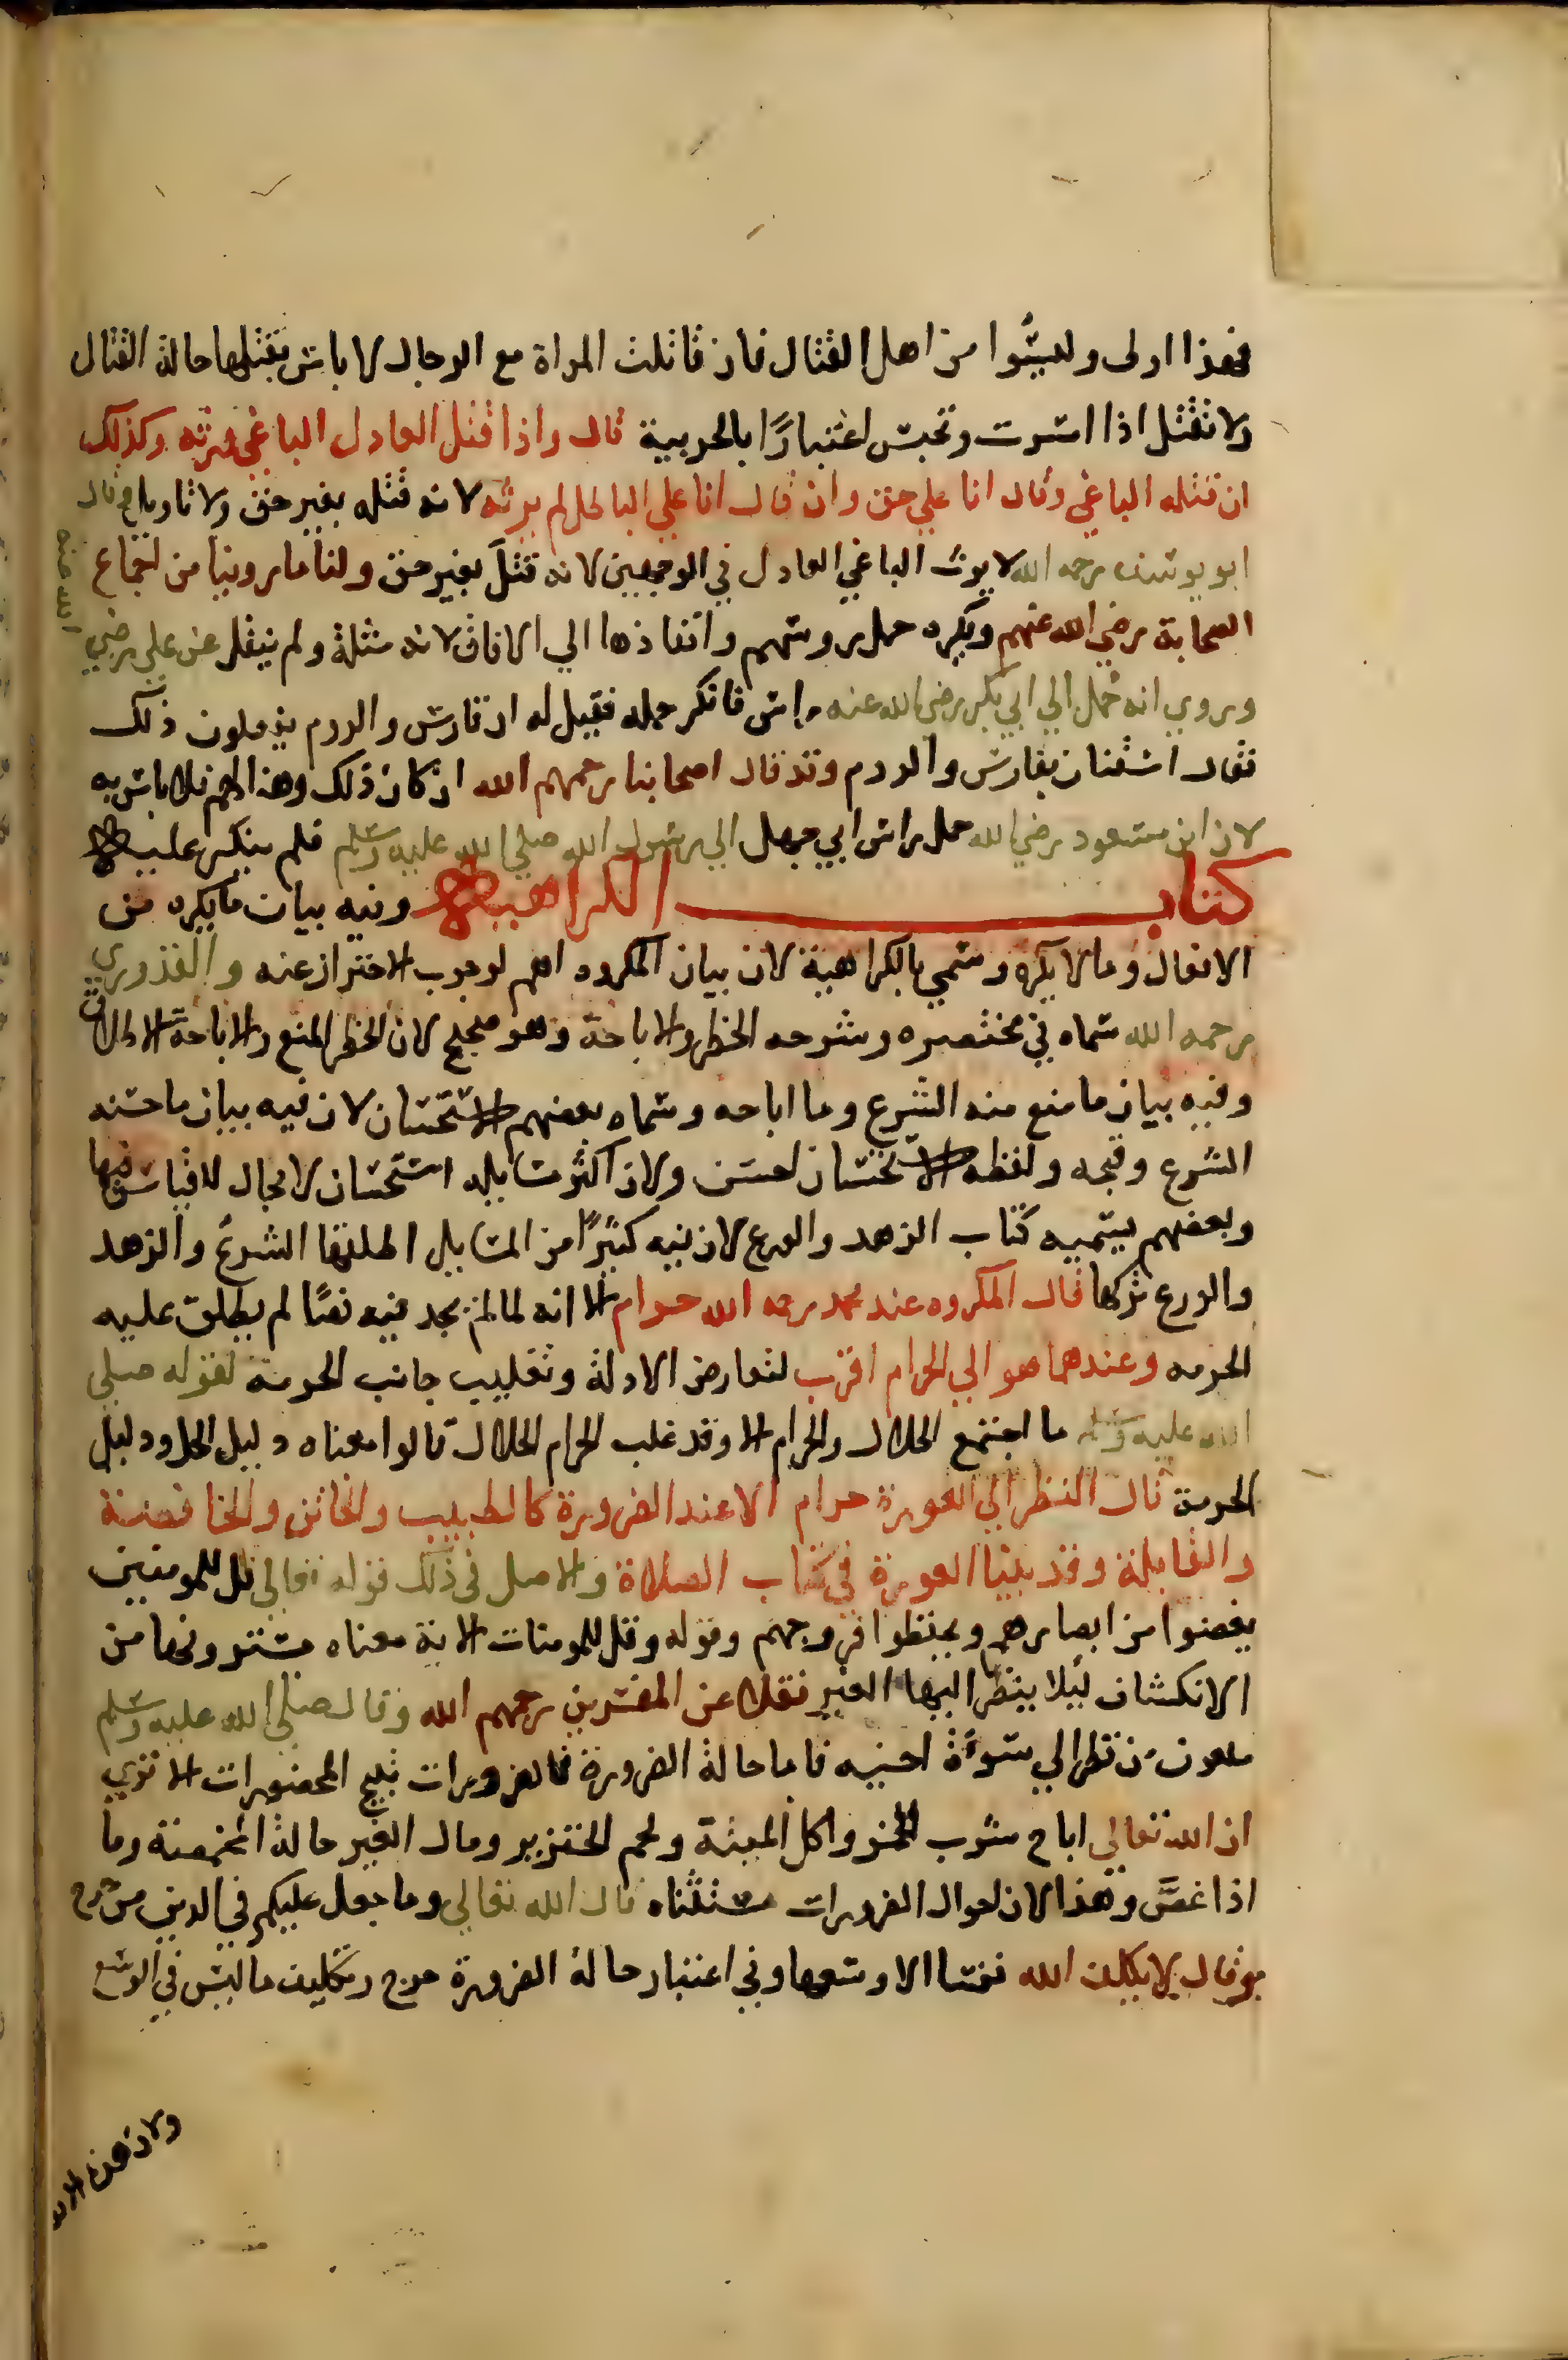 فهذا اولى وليسوا من اهل القتال فان قاتلت المراة مع الرجال لا باس بقتلها حالة القتال
ولا تقتل اذا اسرت وتحبس اعتبارًا بالحربية قال واذا قتل العادل الباغي ورثه وكذلك
ان قتله الباغي وقال انا على حق وان قال انا علي الباطل لم يرثه لانه قتله بغير حق ولا تاويل وقال
ابو يوسف رحمه الله لا يرث الباغي العادل في الوجهين لانه قتل بغير حق ولنا ما روينا من اجماع
الصحابة رضي الله عنهم ويكره حمل روسهم وانفاذها الي الافاق لانه مثلة ولم ينقل عن علي رضي
الله عنه
وروي انه حمل الي ابي بكر رضي الله عنه راس فانكر حمله فقيل له ان فارس والروم يفعلون ذلك
فقال استنان بفارس والروم وقد قال اصحابنا رحمهم الله ان كان ذلك وهنا لهم فلا باس به
لان ابن مسعود رضي الله حمل راس ابي جهل الي رسول الله صلي الله عليه وسلم فلم ينكر عليه
كتاب الكراهية وفيه بيان ما يكره من
الافعال وما لا يكره وسمي بالكراهية لان بيان المكروه اهم لوجوب الاحتراز عنه والقدوري
رحمه الله سماه في مختصره وشرحه الحظر والاباحة وهو صحيح لان الحظر المنع والاباحة الاطلاق
وفيه بيان ما منع منه الشرع وما اباحه وسماه بعضهم الاستحسان لان فيه بيان ما حسنه
الشرع وقبحه ولفظه الاستحسان احسن ولان اكثر مسايله استحسان لا مجال للقياس فيها
وبعضهم يسميه كتاب الزهد والورع لان فيه كثيرًا من المسايل اطلقها الشرع والزهد
والورع تركها قال المكروه عند محمد رحمه الله حرام الا انه لما لم يجد فيه نصًا لم يطلق عليه
الحرمه وعندهما هو الي الحرام اقرب لتعارض الادلة وتغليب جانب الحرمة لقوله صلي
الله عليه وسلم ما اجتمع الحلال والحرام الا وقد غلب الحرام الحلال قالوا معناه دليل الحل ودليل
الحرمة قال النظر الي العورة حرام الا عند الضرورة كالطبيب والخاتن والخافضة
والقابلة وقد بينا العورة في كتاب الصلاة والاصل في ذلك قوله تعالي قل للمومنين
يغضوا من ابصارهم ويحفظوا فروجهم وقوله وقل للمومنات الاية معناه يسترونها من
الانكشاف ليلا ينظر اليها الغير نقلا عن المفسرين رحمهم الله وقال صلي الله عليه وسلم
ملعون من نظر الي سوءة اخيه فاما حالة الضرورة فالضرورات تبيح المحضورات الا تري
ان الله تعالي اباح شرب الخمر واكل الميتة ولحم الخنزير ومال الغير حالة المخمصة وما
اذا غصَّ وهذا لان احوال الضرورات مستثناه قال الله تعالي وما جعل عليكم في الدين من حرج
وقال لا يكلف الله نفسا الا وسعها وفي اعتبار حالة الضرورة حرج وتكليف ما ليس في الوسع
ولان هذه